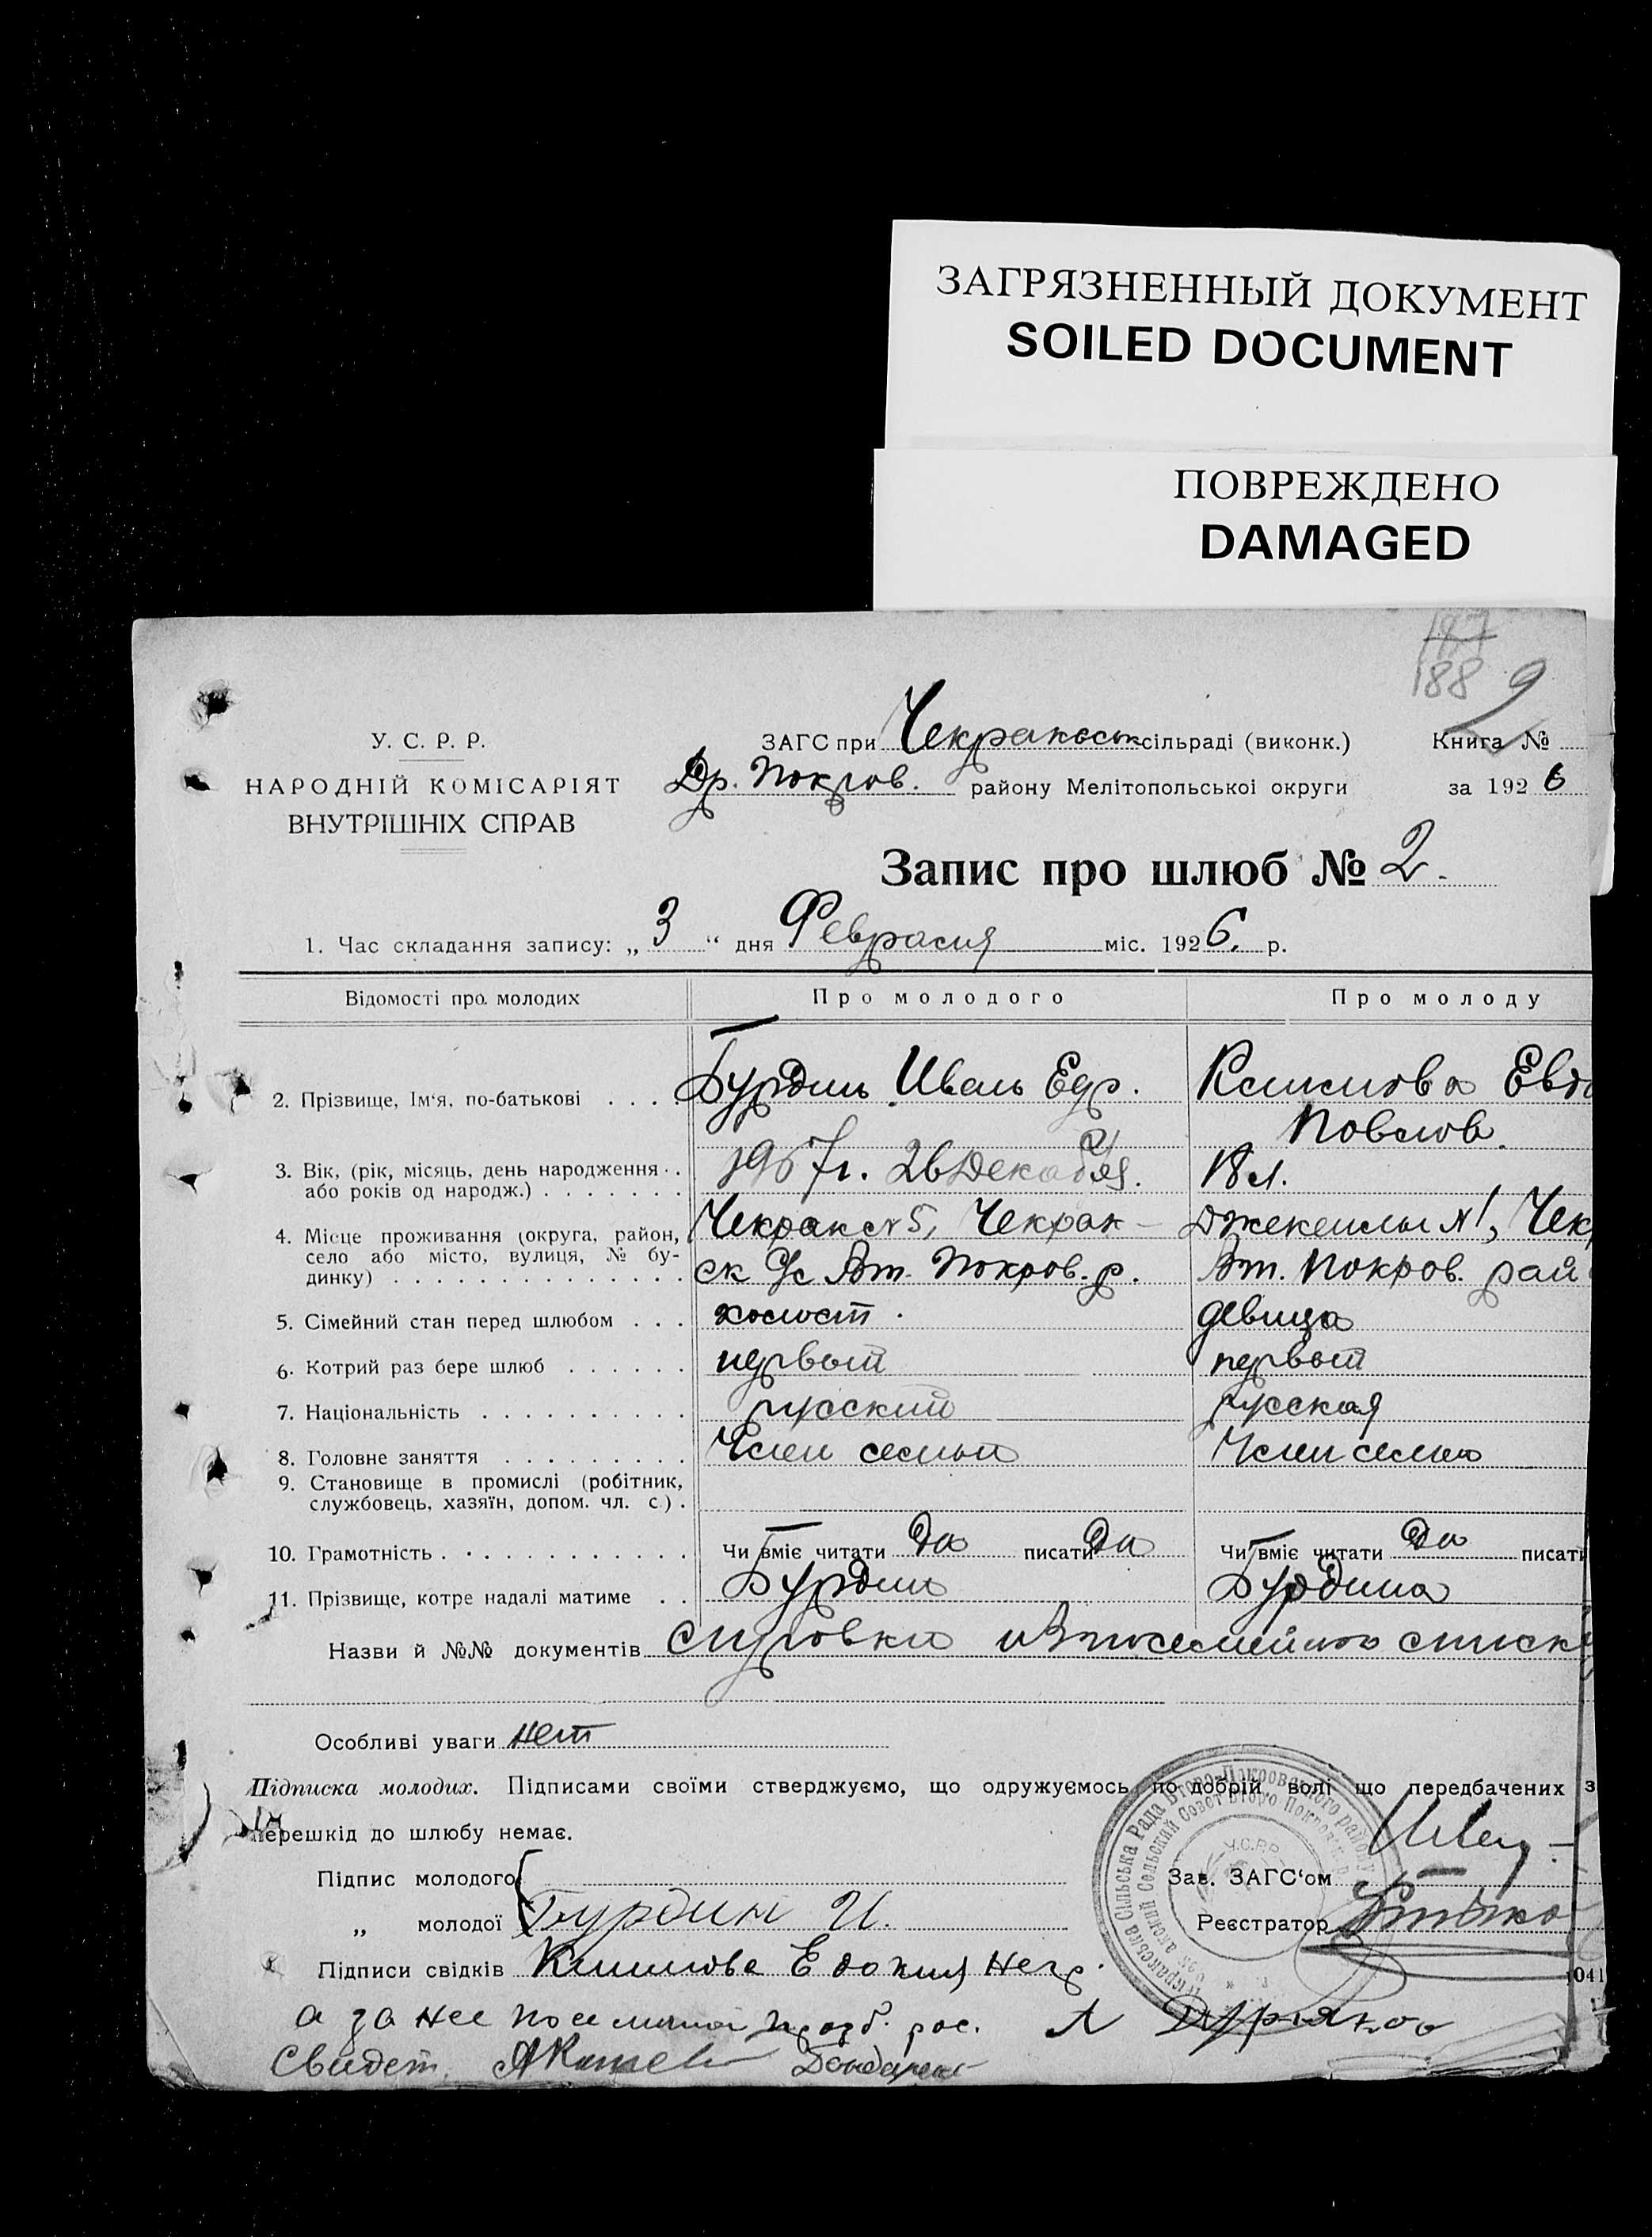 ЗАГРЯЗНЕННЫЙ ДОКУМЕНТ
SOILED DOCUMENT
ПОВРЕЖДЕНО
DAMAGED
187
188 9
У. С. Р. Р.
НАРОДНІЙ КОМІСАРІЯТ
ВНУТРІШНІХ СПРАВ
ЗАГС при Чекракськ сільраді (виконк.)
Др. Покров. району Мелітопольської округи
Книга №
за 1926
Запис про шлюб № 2.
1. Час складання запису: „3“ дня Февраля міс. 1926. р.
Відомості про молодих
Про молодого
Про молоду
2. Прізвище, Ім'я, по-батькові
Бурдин Иван
Климова Евдо
Повлов.
3. Вік, (рік, місяць, день народження
або років од народж.)
1907г. 26 Декабря.
18 л.
4. Місце проживання (округа, район,
село або місто, вулиця, № бу-
динку)
Чекрак №5, Чекрак-
ск Вт. Покров. р.
№1, Чек
Вт. Покров. рай
5. Сімейний стан перед шлюбом
холост.
девица
6. Котрий раз бере шлюб
первый
первый
7. Національність
русский
русская
8. Головне заняття
Член семьи
Член семьи
9. Становище в промислі (робітник,
службовець, хазяїн, допом. чл. с.)
10. Грамотність
Чи вміє читати Да писати Да
Чи вміє читати Да писати
11. Прізвище, котре надалі матиме
Бурдин
Бурдина
Назви й №№ документів посемейного списк
Особливі уваги нет
Підписка молодих. Підписами своїми стверджуємо, що одружуємось по добрій волі що передбачених з
перешкід до шлюбу немає.
Підпис молодого
Зав. ЗАГС‘ом
„ молодої Бурдин И.
Реєстратор
Підписи свідків Климова Едокия Негр.
а за нее по личной прозб. рос. А
Свидет.
Чекракська Сільська Рада Второ-Покровського району
Сельский Совет Второ Покровск. р.
У.С.Р.Р.
1041